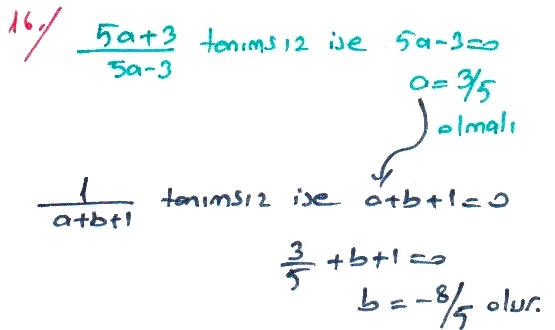 16./ (5a+3)/(5a-3) tanımsız ise 5a-3=0
a=3/5
olmalı
1/(a+b+1) tanımsız ise a+b+1=0
3/5 +b+1=0
b=-8/5 olur.